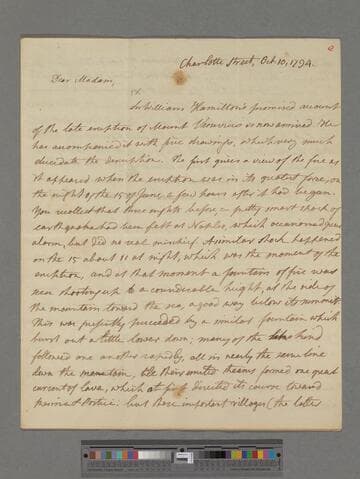 Charlotte Street, Oct 10, 1794.
Dear Madam,
Sir William Hamilton's promised account
of the late eruption of Mount Vesuvius is now arrived. He
has accompanied it with five drawings, which very much
elucidate the description. The first gives a view of the fire as
it appeared when the eruption was in its greatest force, on
the night of the 15 of June a few hours after it had began.
You recollect that three nights before, a pretty smart shock of
earthquake had been felt at Naples, which occasioned great
alarm, but did no real mischief. A similar shock happened
on the 15 about 11 at night, which was the moment of the
eruption, and at that moment a fountain of fire was
seen shooting up to a considerable height, at the side of
the mountain toward the sea, a good way below its summit.
This was presently succeeded by a similar fountain which
burst out a little lower down; many of the kind
followed one another rapidly, all in nearly the same line
down the mountain, their united streams formed one great
current of lava, which at first directed its course toward
Resina & Portici. but these important villages (the latter